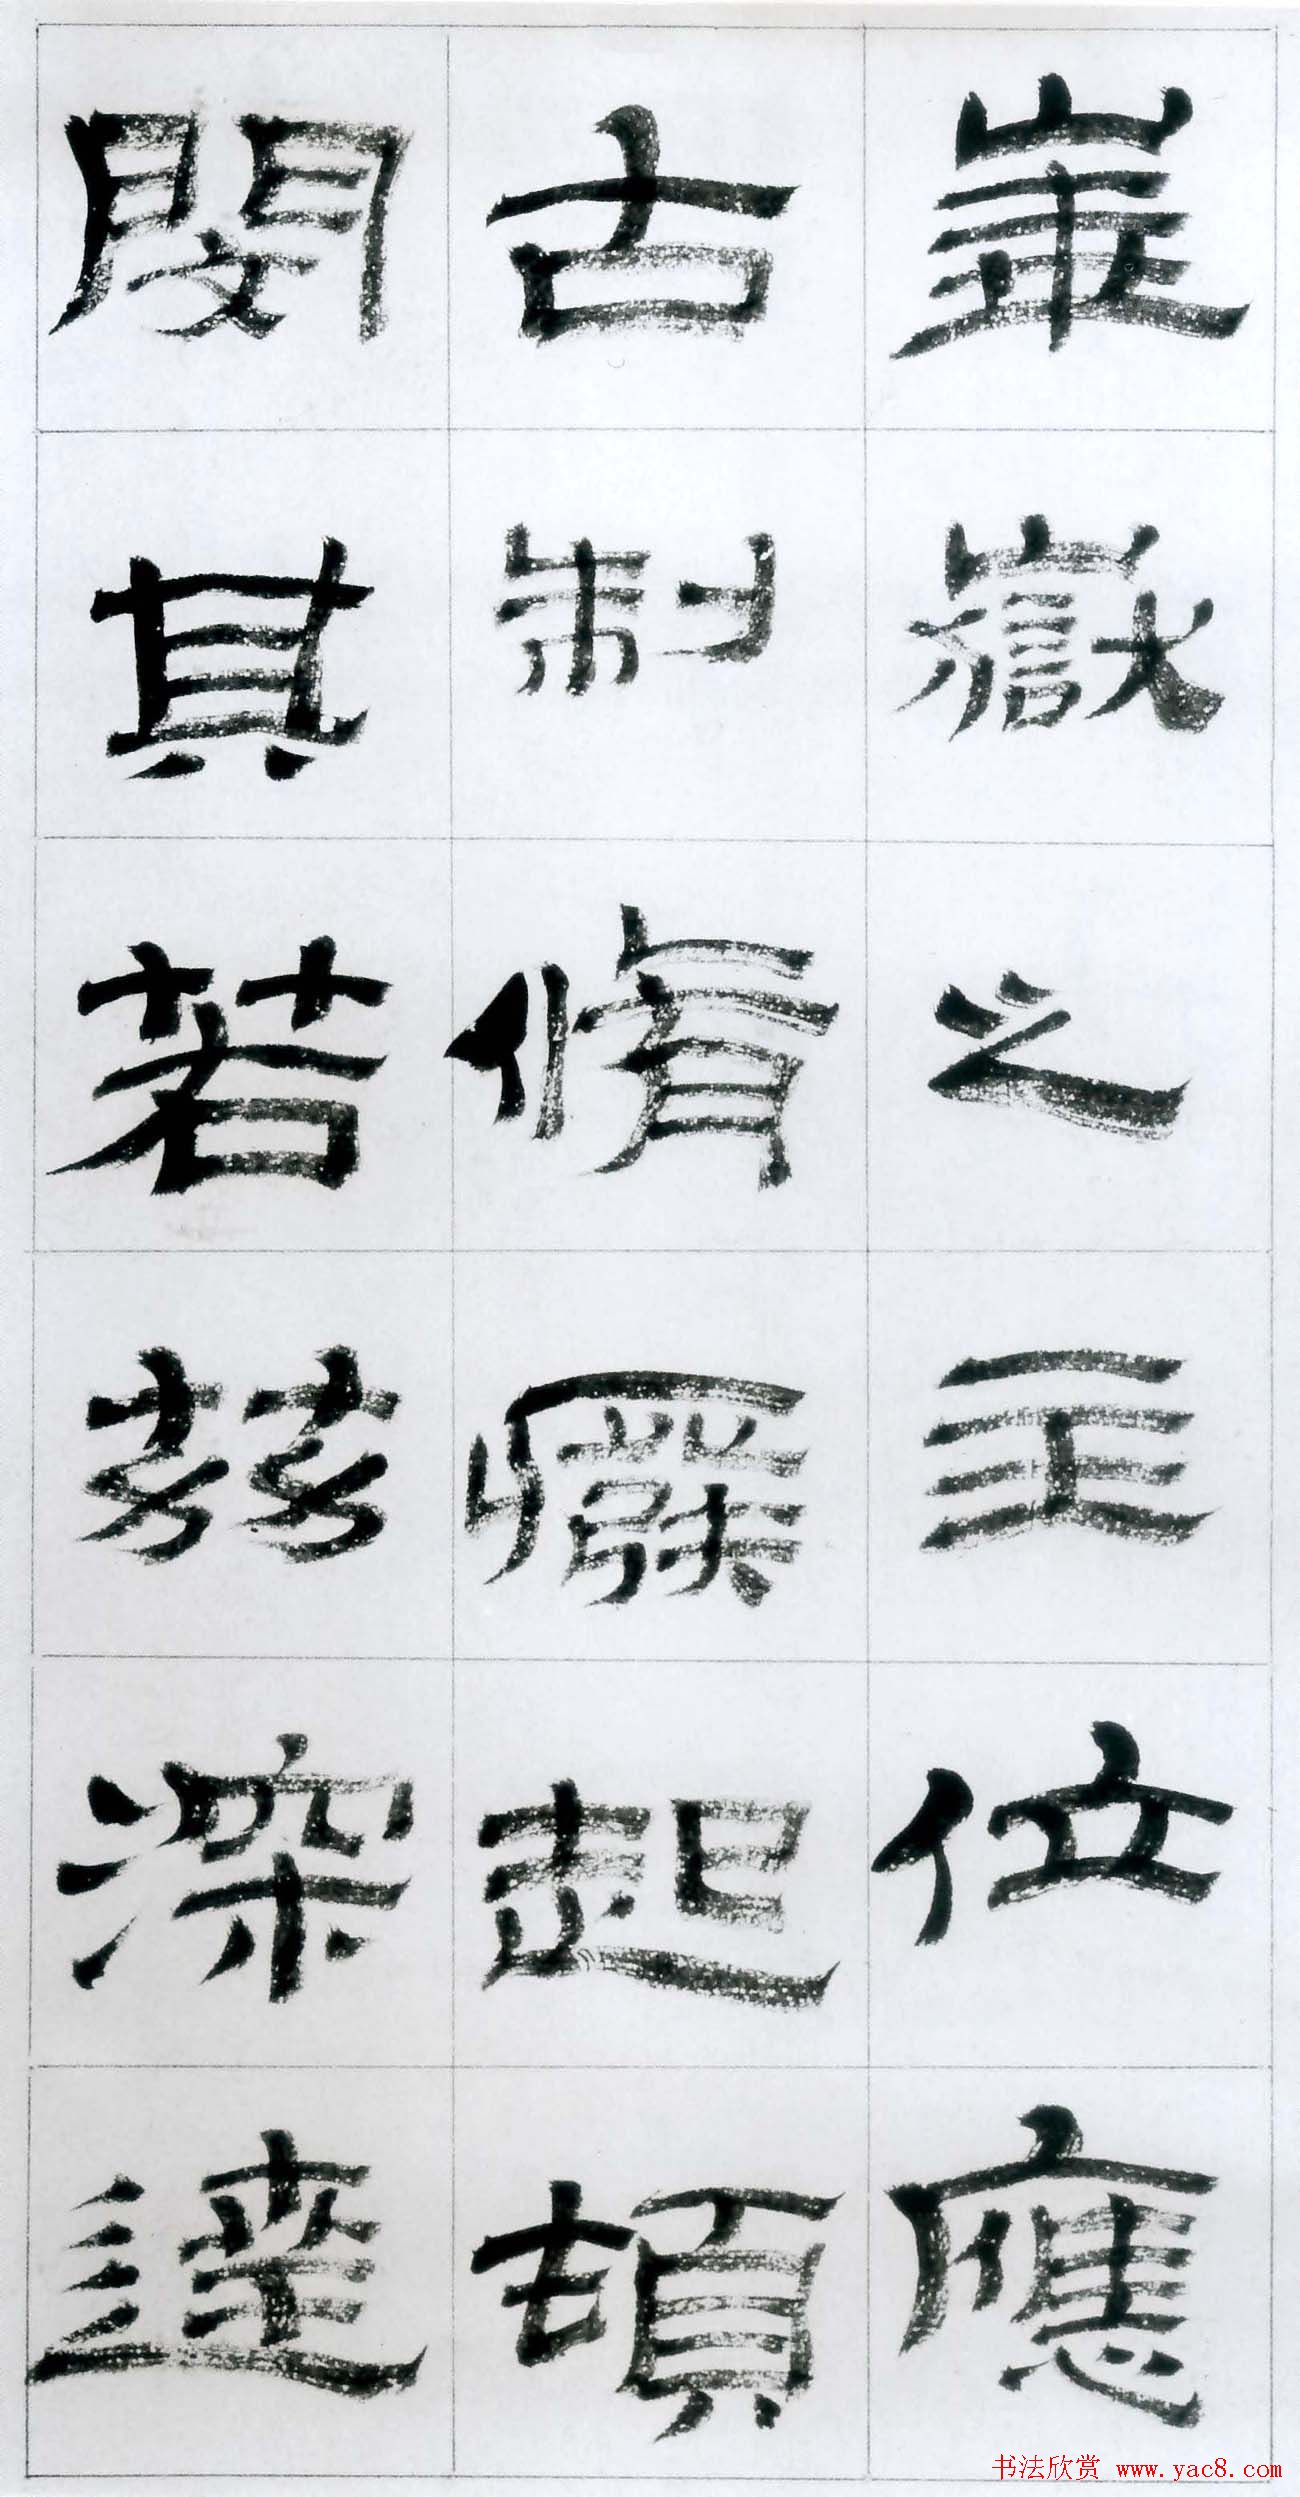 崋嶽之主位應
古制脩癈起頓
閔其若茲深達
书法欣赏 www.yac8.com